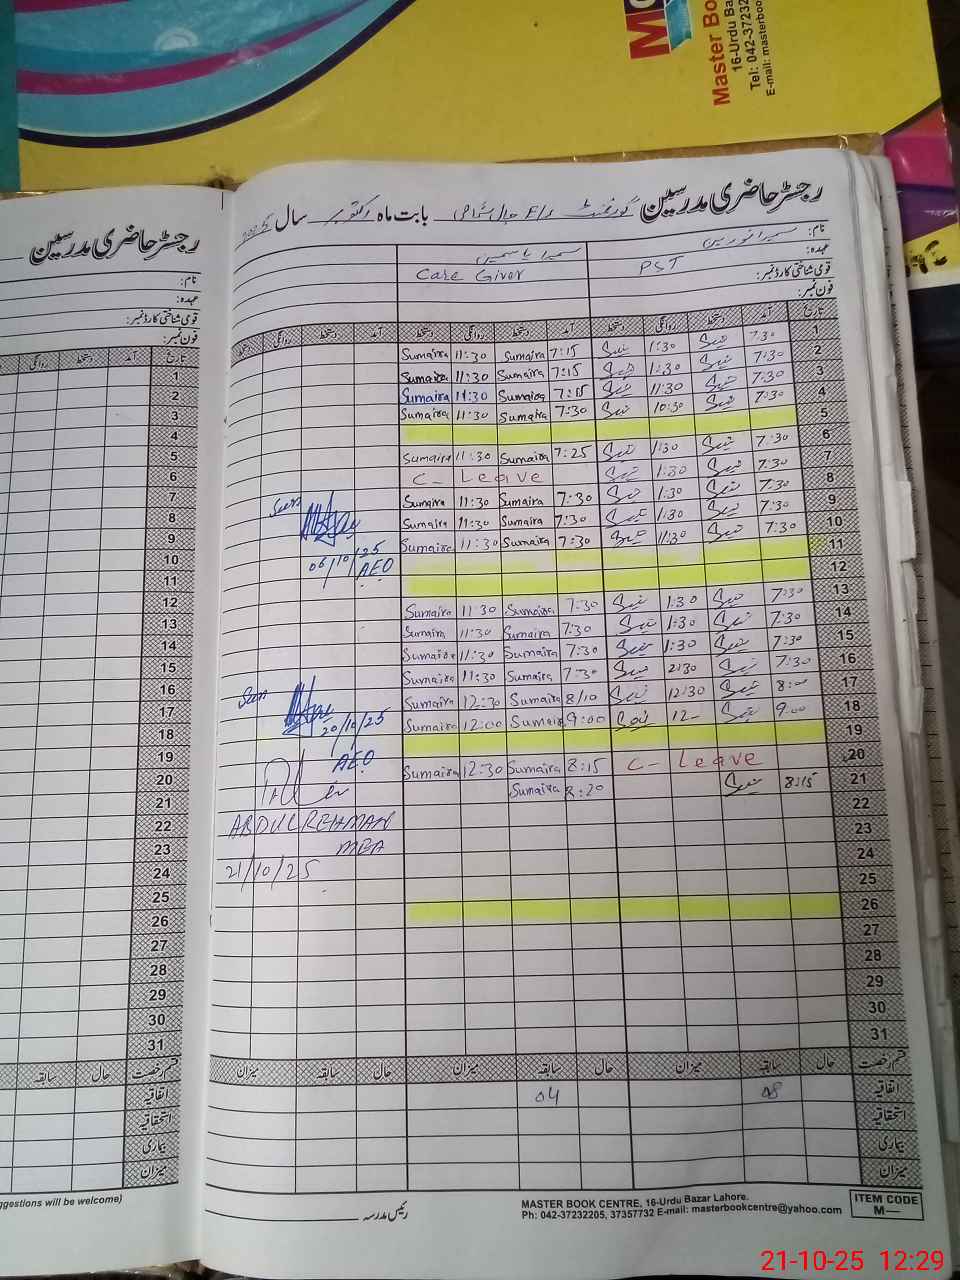 Master Bo
16-Urdu Ba
Tel: 042-37232
E-mail: masterbook
رجسٹر حاضری مدرسین
بابت ماہ اکتوبر سال 2025
نام:
عہدہ:
قومی شناختی کارڈ نمبر:
فون نمبر:
سمیرا یاسمین
Care Giver
PST
تاریخ آمد دستخط روانگی دستخط آمد دستخط روانگی دستخط آمد دستخط روانگی دستخط
1 7:30 1:30 7:15 Sumaira 11:30 Sumaira
2 7:30 11:30 7:15 Sumaira 11:30 Sumaira
3 7:30 11:30 7:15 Sumaira 11:30 Sumaira
4 7:30 10:30 7:30 Sumaira 11:30 Sumaira
5
6 7:30 1:30 7:25 Sumaira 11:30 Sumaira
7 7:30 1:30 C- Leave
8 7:30 1:30 7:30 Sumaira 11:30 Sumaira
9 7:30 1:30 7:30 Sumaira 11:30 Sumaira
10 7:30 11:30 7:30 Sumaira 11:30 Sumaira
11
12
13 7:30 1:30 7:30 Sumaira 11:30 Sumaira
14 7:30 1:30 7:30 Sumaira 11:30 Sumaira
15 7:30 1:30 7:30 Sumaira 11:30 Sumaira
16 7:30 7:30 Sumaira 11:30 Sumaira
17 8:00 12:30 8/10 Sumaira 12:30 Sumaira
18 9:00 12- 9:00 Sumaira 12:00 Sumaira
19
20 C- Leave 8:15 Sumaira 12:30 Sumaira
21 8:15 8:20 Sumaira
22
23
24
25
26
27
28
29
30
31
Seen
06/10/25
AEO
Seen
20/10/25
AEO
ABDUL REHMAN
MEA
21/10/25
قسم رخصت حال سابقہ میزان حال سابقہ میزان حال سابقہ میزان
اتفاقیہ 08 04
استحقاقیہ
بیماری
میزان
رئیس مدرسہ
MASTER BOOK CENTRE, 16-Urdu Bazar Lahore.
Ph: 042-37232205, 37357732 E-mail: masterbookcentre@yahoo.com
ITEM CODE
M—
رجسٹر حاضری مدرسین
نام:
عہدہ:
قومی شناختی کارڈ نمبر:
فون نمبر:
تاریخ آمد دستخط روانگی
1
2
3
4
5
6
7
8
9
10
11
12
13
14
15
16
17
18
19
20
21
22
23
24
25
26
27
28
29
30
31
قسم رخصت حال سابقہ
اتفاقیہ
استحقاقیہ
بیماری
میزان
ggestions will be welcome)
21-10-25 12:29